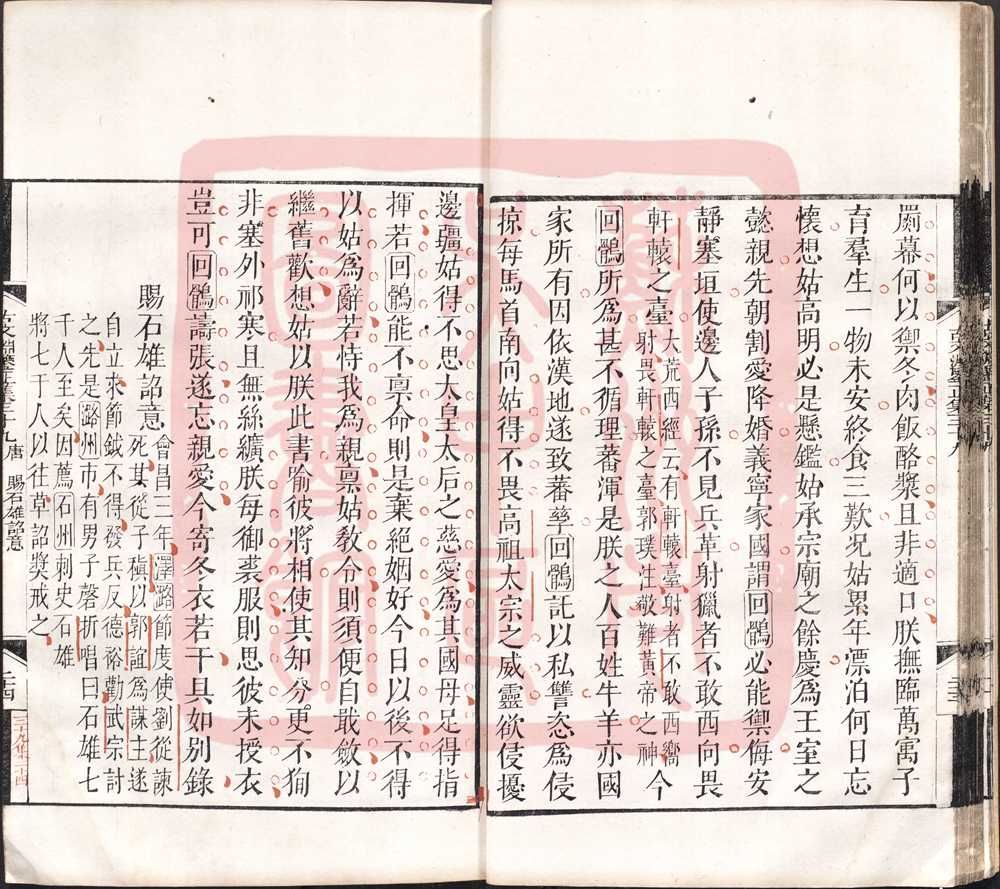 罽幕何以禦冬肉飯酪漿且非適口朕撫臨萬㝢子
育羣生一物未安終食三歎况姑累年漂泊何日忘
懷想姑高明必是懸鑑始承宗廟之餘慶爲王室之
懿親先朝割愛降婚義寧家國謂回鶻必能禦侮安
靜塞垣使邊人子孫不見兵革射獵者不敢西向畏
軒轅之臺大荒西經云有軒轅臺射者不敢西嚮
射畏軒轅之臺郭璞注敬難黃帝之神今
回鶻所爲甚不循理蕃渾是朕之人百姓牛羊亦國
家所有因依漢地遂致蕃孳回鶻託以私讐恣爲侵
掠每馬首南向姑得不畏高祖太宗之威靈欲侵擾
邊疆姑得不思太皇太后之慈愛爲其國母足得指
揮若回鶻能不禀命則是棄絕姻好今日以後不得
以姑爲辭若恃我爲親禀姑敎令則須便自戢斂以
繼舊歡想姑以朕此書喻彼將相使其知分更不徇
非塞外祁寒且無絲纊朕每御裘服則思彼未授衣
豈可回鶻譸張遂忘親愛今寄冬衣若干具如別錄
賜石雄詔意會昌三年澤潞節度使劉從諫
死其從子稹以郭誼爲謀主遂
自立求節鉞不得發兵反德裕勸武宗討
之先是潞州市有男子磬折唱曰石雄七
千人至矣因薦石州刺史石雄
將七千人以往草詔奬戒之
唐 賜石雄詔意